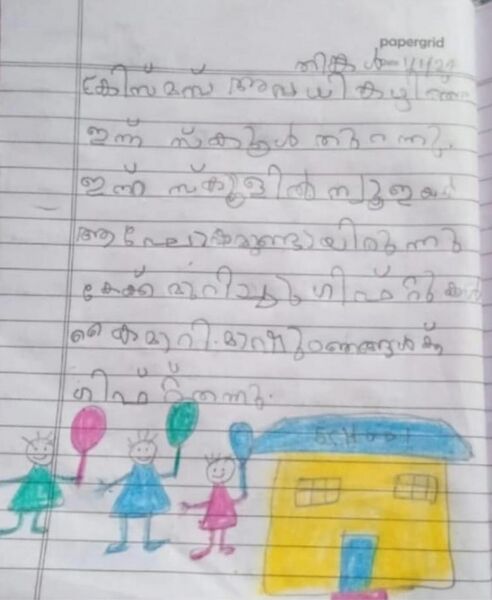 papergrid
തിങ്കൾ 1/1/24
ക്രിസ്മസ് അവധി കഴിഞ്ഞ്
ഇന്ന് സ്കൂൾ തുറന്നു.
ഇന്ന് സ്കൂളിൽ ന്യൂഇയർ
ആഘോഷമുണ്ടായിരുന്നു
കേക്ക് മുറിച്ചു ഗിഫ്റ്റുകൾ
കൈമാറി. മാഷും ഞങ്ങൾക്ക്
ഗിഫ്റ്റ് തന്നു.
SCHOOL